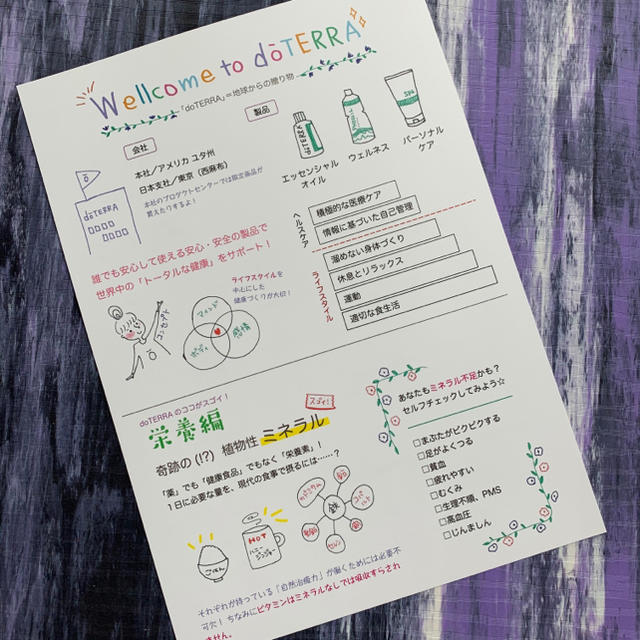 Wellcome to dōTERRA
「doTERRA」=地球からの贈り物
会社
製品
本社/アメリカ ユタ州
日本支社/東京（西麻布）
本社のプロダクトセンターでは限定商品が
買えたりするよ！
dōTERRA
エッセンシャル
オイル
ウェルネス
パーソナル
ケア
誰でも安心して使える安心・安全の製品で
世界中の「トータルな健康」をサポート！
コンセプト
ライフスタイルを
中心にした
健康づくりが大切！
マインド
ボディ
感情
ヘルスケア
積極的な医療ケア
情報に基づいた自己管理
ライフスタイル
溜めない身体づくり
休息とリラックス
運動
適切な食生活
doTERRAのココがスゴイ！
栄養編
スゴイ！
奇跡の（!?）植物性 ミネラル
「薬」でも「健康食品」でもなく「栄養素」！
1日に必要な量を、現代の食事で摂るには……？
ごはん
HOT
ハニー
ジンジャー
それぞれが持っている「自然治癒力」が働くためには必要不
可欠！ ちなみにビタミンはミネラルなしでは吸収すらされ
ません。
あなたもミネラル不足かも？
セルフチェックしてみよう☆
□まぶたがピクピクする
□足がよくつる
□貧血
□疲れやすい
□むくみ
□生理不順、PMS
□高血圧
□じんましん